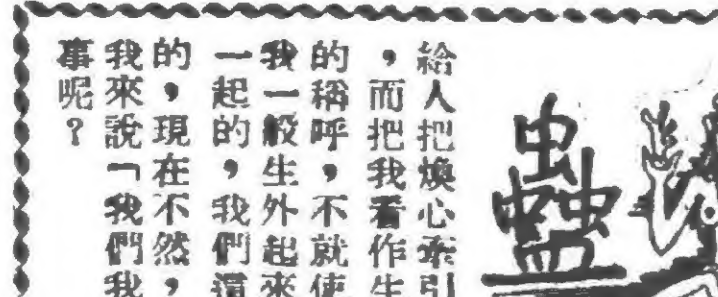 蠱
給人把煥心牽引
，而把我看作生
的稱呼，不就使
我一般生外起來
一起的，我們還
的，現在不然，
我來說「我們我
事呢？